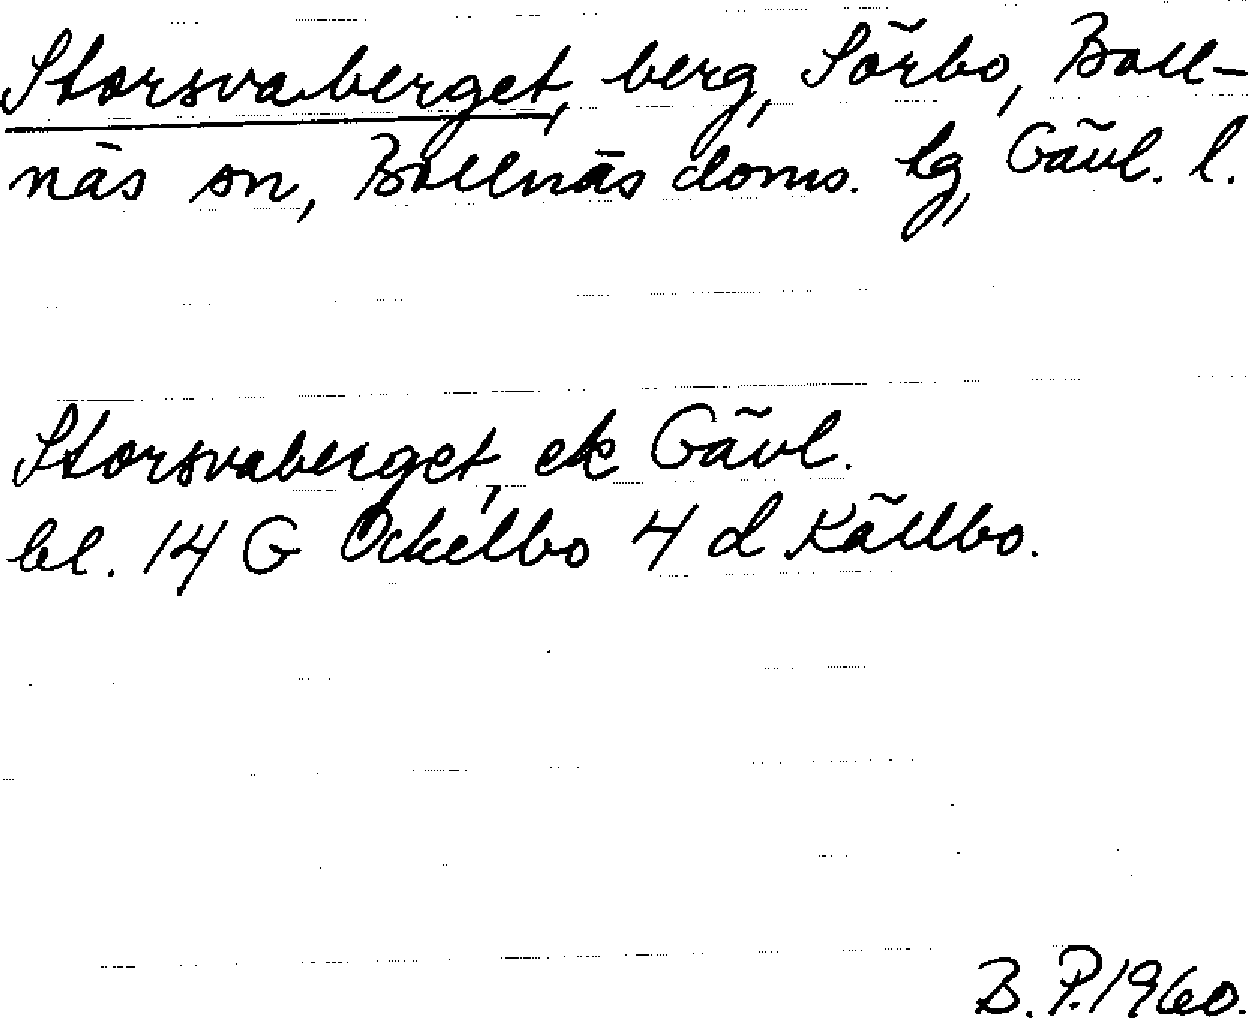 Storsvaberget, berg, Sörbo, Boll-
näs sn, Bollnäs doms. lg, Gävl. l.
Storsvaberget, ek Gävl.
bl. 14 G Ockelbo 4 d Källbo.
B. P. 1960.